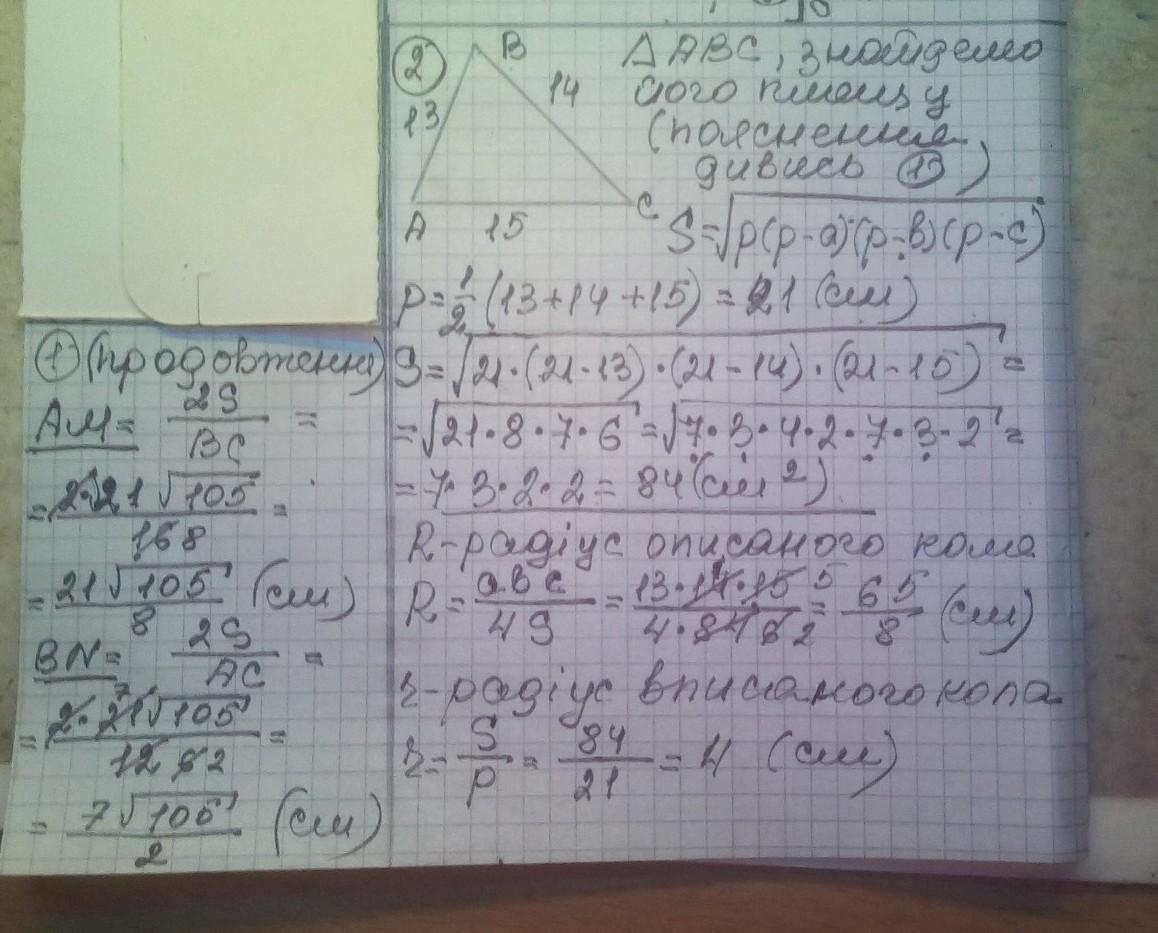 ① (продовження)
AM = 2S/BC =
= 2·21√105/168 =
= 21√105/8 (см)
BN = 2S/AC =
= 2·21√105 7/12 6 2 =
= 7√105/2 (см)
②
B
13
14
A
15
C
ΔABC, знайдемо
його площу
(пояснення
дивись ①)
S=√p(p-a)(p-b)(p-c)
P=1/2(13+14+15) = 21 (см)
S=√21·(21-13)·(21-14)·(21-15) =
=√21·8·7·6=√7·3·4·2·7·3·2=
=7·3·2·2= 84 (см²)
R-радіус описаного кола
R = abc/4S = 13·14·15 5/4·84 6 2 = 65/8 (см)
r-радіус вписаного кола
r = S/p = 84/21 = 4 (см)